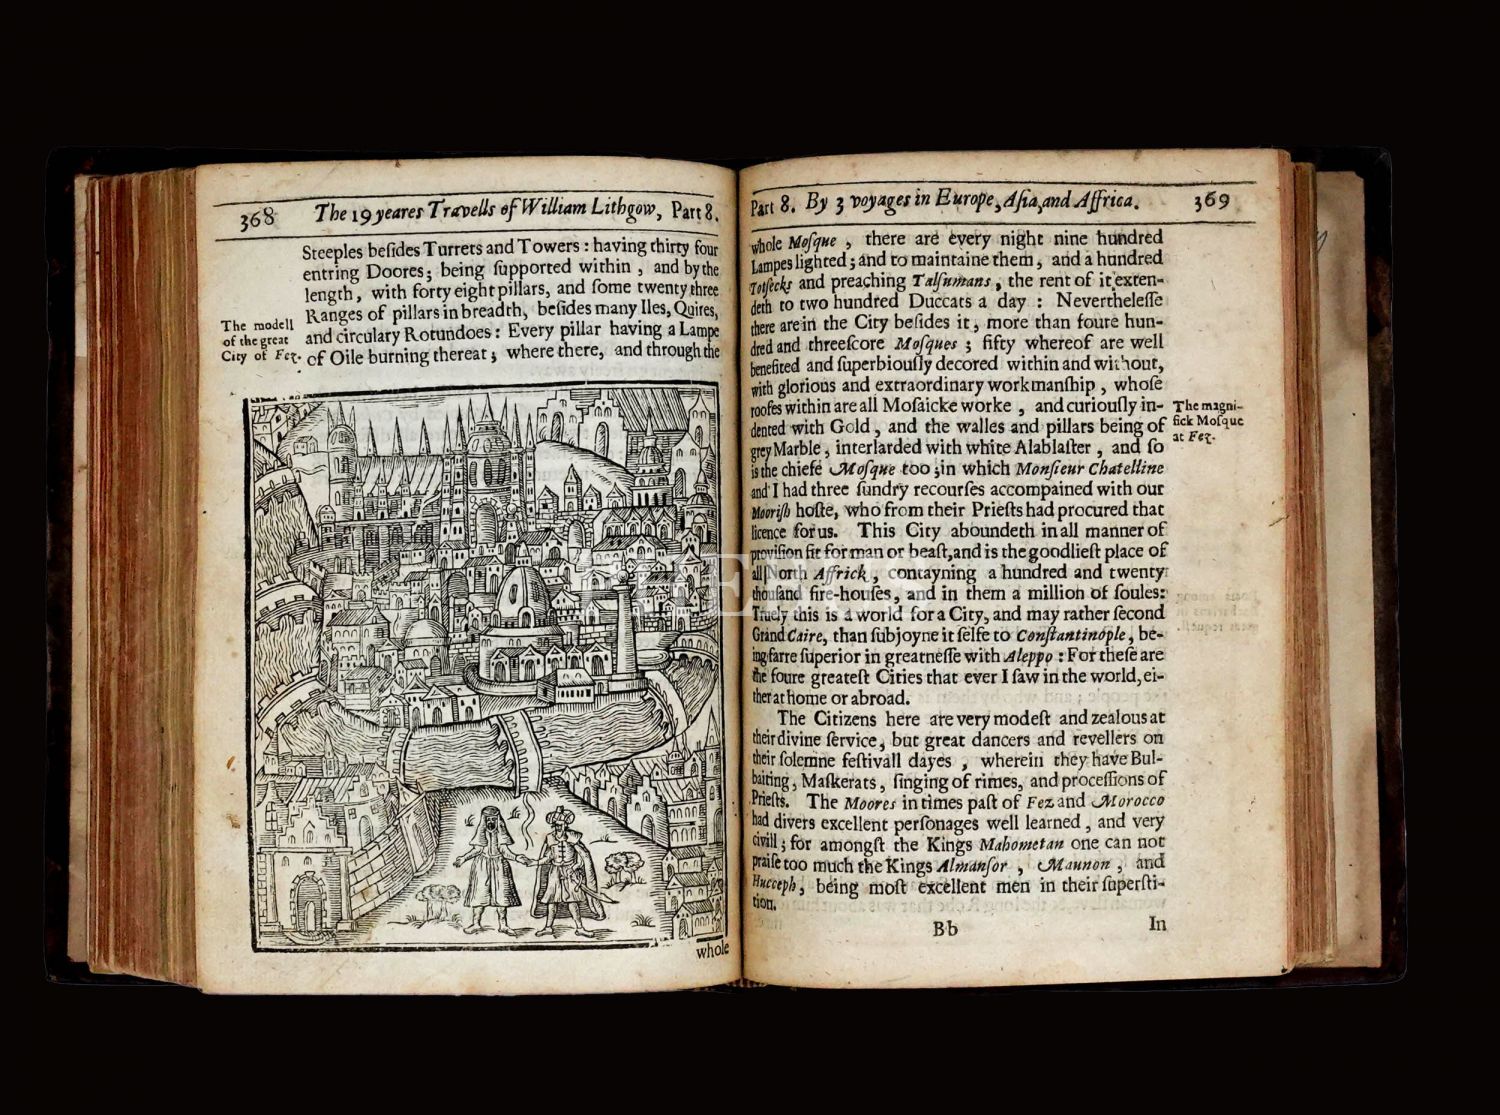 368 The 19 yeares Travells of William Lithgow, Part 8.
Steeples beſides Turrets and Towers : having thirty four
entring Doores; being ſupported within , and by the
length, with forty eight pillars, and ſome twenty three
Ranges of pillars in breadth, beſides many Iles, Quires,
and circulary Rotundoes : Every pillar having a Lampe
of Oile burning thereat ; where there, and through the
The modell
of the great
City of Fez.
whole
Part 8. By 3 voyages in Europe, Aſia, and Affrica. 369
whole Moſque , there are every night nine hundred
Lampes lighted ; and to maintaine them, and a hundred
Totſecks and preaching Talſumans , the rent of it exten-
deth to two hundred Duccats a day : Nevertheleſſe
there are in the City beſides it , more than foure hun-
dred and threeſcore Moſques ; fifty whereof are well
benefited and ſuperbiouſly decored within and without,
with glorious and extraordinary workmanſhip , whoſe
roofes within are all Moſaicke worke , and curiouſly in-
dented with Gold , and the walles and pillars being of
grey Marble , interlarded with white Alablaſter , and ſo
is the chiefe Moſque too ; in which Monſieur Chatelline
and I had three ſundry recourſes accompained with our
Mooriſh hoſte, who from their Prieſts had procured that
licence for us. This City aboundeth in all manner of
proviſion fit for man or beaſt, and is the goodlieſt place of
all North Affrick , contayning a hundred and twenty
thouſand fire-houſes, and in them a million of ſoules:
Truely this is a world for a City, and may rather ſecond
Grand Caire, than ſubjoyne it ſelfe to Conſtantinople , be-
ing farre ſuperior in greatneſſe with Aleppo : For theſe are
the foure greateſt Cities that ever I ſaw in the world, ei-
ther at home or abroad.
The Citizens here are very modeſt and zealous at
their divine ſervice, but great dancers and revellers on
their ſolemne feſtivall dayes , wherein they have Bul-
baiting, Maſkerats, ſinging of rimes, and proceſſions of
Prieſts. The Moores in times paſt of Fez and Morocco
had divers excellent perſonages well learned , and very
civill ; for amongſt the Kings Mahometan one can not
praiſe too much the Kings Almanſor , Maunon , and
Hucceph, being moſt excellent men in their ſuperſti-
tion.
The magni-
fick Moſque
at Fez.
Bb In